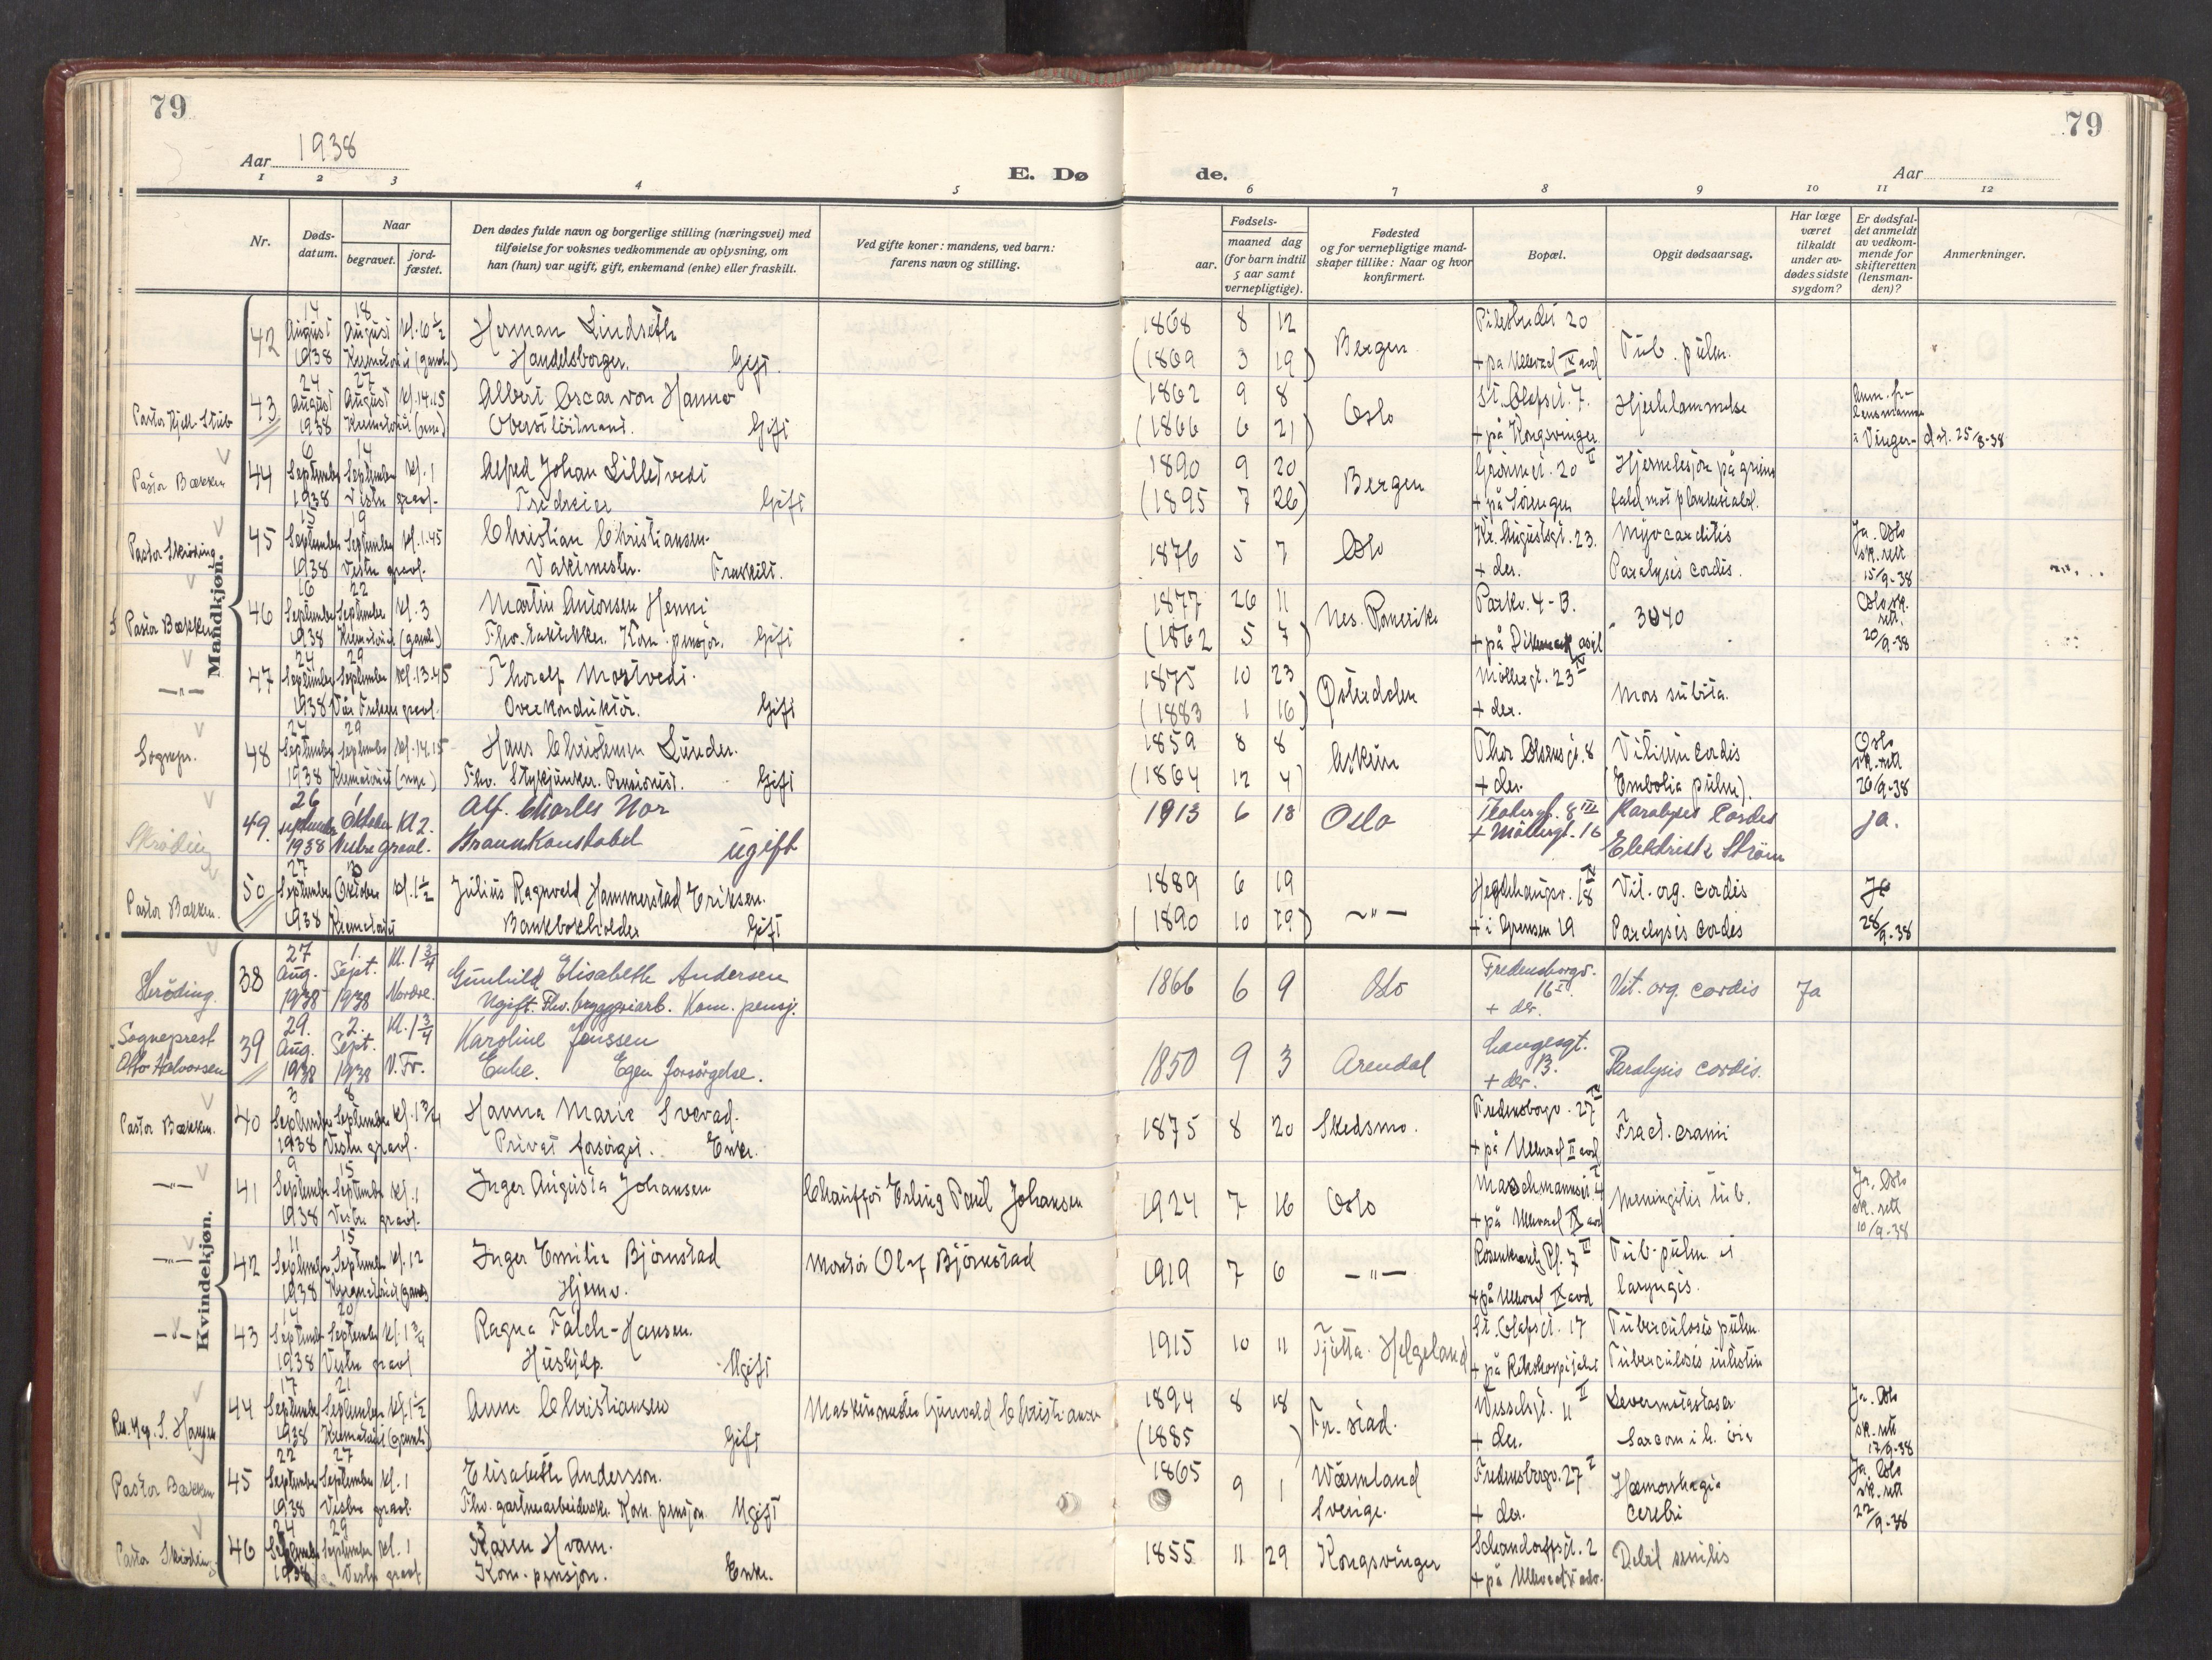 79
79
Aar 1938
E. Dø
de.
Aar
1 2 3 4 5 6 7 8 9 10 11 12
Nr.
Døds-
datum.
Naar
begravet.
jord-
fæstet.
Den dødes fulde navn og borgerlige stilling (næringsvei) med
tilføielse for voksnes vedkommende av oplysning, om
han (hun) var ugift, gift, enkemand (enke) eller fraskilt.
Ved gifte koner: mandens, ved barn:
farens navn og stilling.
Fødsels-
aar.
maaned dag
(for barn indtil
5 aar samt
vernepligtige).
Fødested
og for vernepligtige mand-
skaper tillike: Naar og hvor
konfirmert.
Bopæl.
Opgit dødsaarsag.
Har læge
været
tilkaldt
under av-
dødes sidste
sygdom?
Er dødsfal-
det anmeldt
av vedkom-
mende for
skifteretten
(lensman-
den)?
Anmerkninger.
Mandkjøn.
14 18
42 August August kl. 10 1/2 Herman Lindseth 1868 8 12 Bergen Pilestredet 20 Tub. pulm.
1938 Krematoriet (gamle) Handelsborger. Gift. (1869 3 19) + på Ullevaal IX avd
24 27
Pastor Kjell Stub 43 August August kl. 14.15 Albert Oscar von Hanno 1862 9 8 Oslo St. Olafsgt. 7. Hjertelammelse Anm. fr. lensmannen
1938 Krematoriet (nye) Oberstløitnant. Gift (1866 6 21) + på Kongsvinger i Vinger d.d. 25/8-38
6 14
Pastor Bækken 44 September September kl. 1 Alfred Johan Lilletvedt 1890 9 20 Bergen Grønnegt. 20 II Hjernelesjon på grunn
1938 Vestre gravl. Gift (1895 7 26) + på fald mot
15 19
Pastor Skrøding. 45 September September kl. 1.45 Christian Christiansen. 1876 5 7 Oslo Kr. Augustsgt. 23. Myocarditis Ja. Oslo
1938 Vestre gravl. Vaktmester. Fraskilt. + der. Paralysis cordis. sk. rett
15/9-38
16 22
Pastor Bækken 46 September September kl. 3 Martin Antonsen Henni 1877 26 11 Nes. Romerike Parkv. 4-B. 3040 Oslo sk.
1938 Krematoriet (gamle) Kom. pensjon. Gift (1862 5 7) + på Dikemark asyl rett.
20/9-38
24 29
—"— 47 September September kl. 13.45 Thoralf Mostvedt. 1875 10 23 Østerdalen Møllergt. 23 IV Mors subita.
1938 Vår Frelsers gravl. Overkonduktør. Gift (1883 1 16) + der.
24 29
Sognepr. 48 September September kl. 14.15 Hans Christensen Lunder. 1859 8 8 Askim Thor Olsensgt. 8 Vitium cordis Oslo
1938 Krematoriet (nye) Fhv. Stykjunker. Pensionist. Gift (1864 12 4) + der. (Embolia pulm). sk. rett
26/9-38
26 1
Skrøding 49. September Oktober Kl 2. Alf. Charles Nor 1913 6 18 Oslo 8 III Paralysis Cordis ja.
1938 Vestre gravl. Brannkonstabel ugift + Møllergt. 16 Elektrisk Strøm
27 3
Pastor Bækken. 50 September Oktober kl. 1 1/2 Julius Ragnvald Hammerstad Eriksen. 1889 6 19 —"— Hegdehaugsv. 18 IV Vit. org. cordis Ja
1938 Krematoriet Bankbokholder Gift (1890 10 29) + i Grensen 19 Paralysis cordis 28/9-38
Kvindekjøn.
27 1.
Skrøding. 38 Aug. Sept. Kl. 1 3/4 Gunhild Elisabeth Andersen 1866 6 9 Oslo Fredensborgv. Vit. org. cordis Ja
1938 1938 Nordre. Ugift. Fhv. bryggeriarb. Kom. pensj. 16 II. + der.
29. 2.
Sogneprest 39 Aug. Sept. Kl. 1 3/4 Karoline Jenssen 1850 9 3 Arendal Langesgt. Paralysis cordis.
Otto Halvorsen 1938 1938 V. Fr. Enke. Egen forsørgelse. 13. + der.
3 8
Pastor Bækken. 40 September September kl. 1 3/4 Hanna Marie Sverad. 1875 8 20 Skedsmo. Fredensborgv. 27 II Fract. cranii
1938 Vestre gravl. Privat forsørget. Enke. + på Ullevaal II avd
9 15
—"— 41 September September kl. 1 Inger Augusta Johansen Chauffør Erling Paul Johansen 1924 7 16 Oslo 4 Meningitis tub. Ja. Oslo
1938 Vestre gravl. + på Ullevaal IX avd sk. rett
10/9-38
11 15
—"— 42 September September kl. 12 Inger Emilie Bjørnstad Montør Olaf Bjørnstad 1919 7 6 —"— Rosenkrantz Pl. 7 II Tub. pulm. et
1938 Krematoriet (gamle) Hjemv. + på Ullevaal IX avd laryngis.
14 20
—"— 43 September September kl. 1 3/4 Ragna Falch-Hansen. 1915 10 11 Tjøtta. Helgeland St. Olafsgt. 17 Tuberculosis pulm.
1938 Vestre gravl Hushjelp. Ugift + på Rikshospitalet Tuberculosis intestin
17 21
Res. Kap. S. Hansen 44 September September kl. 1 1/2 Anna Christiansen Maskinmester Gunvald Christiansen 1894 8 18 Fr. stad. Wesselsgt. 11 II Levermetastaser Ja. Oslo
1938 Krematoriet (gamle) Gift (1885 ) + der. Sarcom i h. øie sk. rett
17/9-38
22 27
Pastor Bækken 45 September September kl. 1 Elisabeth Andersson. 1865 9 1 Wärmland Fredensborgv. 27 I Hæmorrhagia Ja. Oslo
1938 Vestre gravl. Fhv. gartnerarbeiderske. Kom. pensjon. Ugift Sverige. + der. cerebri sk. rett
22/9-38
24 29
Pastor Skrøding. 46 September September kl. 1 Karen Hvam. 1855 11 29 Kongsvinger Schandorffsgt. 2 Debil senilis
1938 Vestre gravl Kom. pensjon. Enke. + på Ullevaal avd.